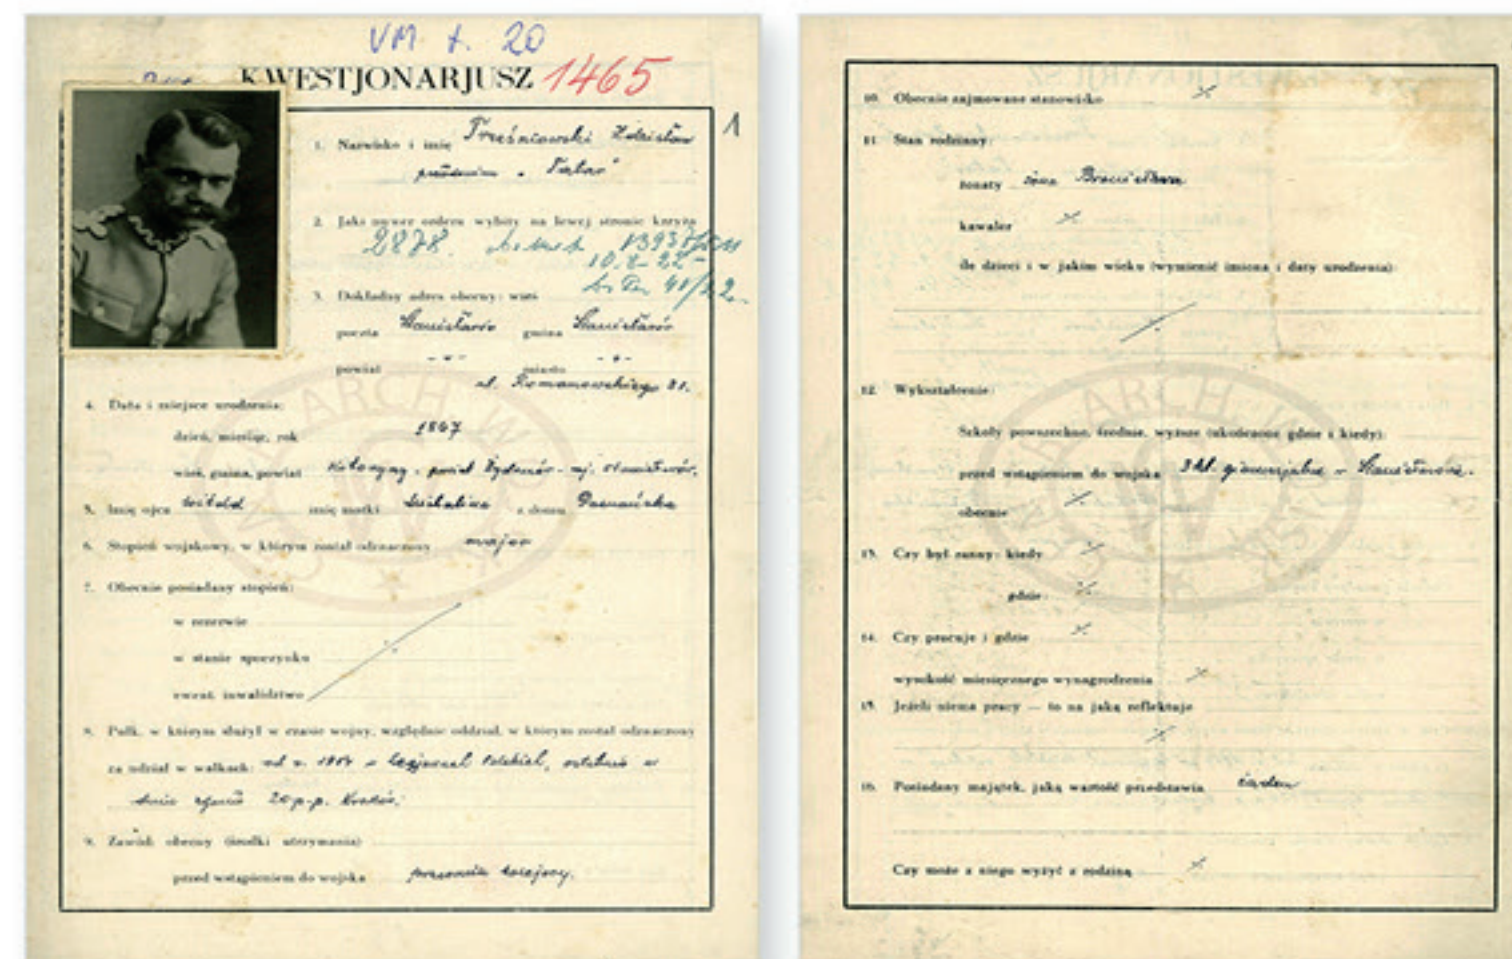 VM t. 20
KWESTJONARJUSZ 1465
1
1. Nazwisko i imię Trześniowski Zdzisław
pseudonim "Tatar"
2. Jaki numer orderu wybity na lewej stronie krzyża
2878.
10.2-22-
3. Dokładny adres obecny: wieś
poczta Stanisławów gmina Stanisławów
powiat -"- miasto -"-
ul. Romanowskiego
4. Data i miejsce urodzenia:
dzień, miesiąc, rok 1867
wieś, gmina, powiat
5. Imię ojca Witold imię matki Michalina z domu Poznańska
6. Stopień wojskowy, w którym został odznaczony major
7. Obecnie posiadany stopień:
w rezerwie
w stanie spoczynku
ewent. inwalidztwo
8. Pułk, w którym służył w czasie wojny, względnie oddział, w którym został odznaczony
za udział w walkach: od r. 1914 w Legjonach Polskich, ostatnio w
20 p.p. Kraków.
9. Zawód: obecny (środki utrzymania)
przed wstąpieniem do wojska kolejowy.
ARCH W
10. Obecnie zajmowane stanowisko
11. Stan rodzinny:
żonaty żona Bronisława
kawaler
ile dzieci i w jakim wieku (wymienić imiona i daty urodzenia):
12. Wykształcenie:
Szkoły powszechne, średnie, wyższe (ukończone gdzie i kiedy):
przed wstąpieniem do wojska 3 kl. gimnazjalne w Stanisławowie.
obecnie
13. Czy był ranny: kiedy
gdzie:
14. Czy pracuje i gdzie
wysokość miesięcznego wynagrodzenia
15. Jeżeli niema pracy — to na jaką reflektuje
16. Posiadany majątek, jaką wartość przedstawia żaden
Czy może z niego wyżyć z rodziną
ARCH W